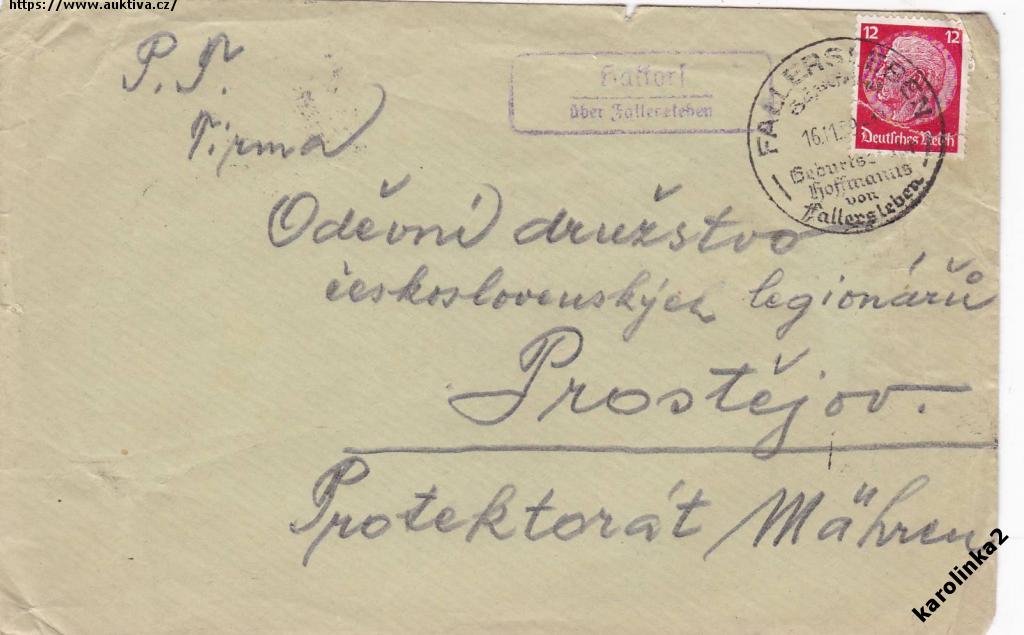 https://www.auktiva.cz/
P. T.
Firma
Hattorf
über Fallersleben
FALLERSLEBEN
16.11.39
Geburtsort
Hoffmanns
von
Fallersleben
12 12
Deutsches Reich
Oděvní družstvo
československých legionářů
Prostějov.
Protektorát Mähren
karolinka2